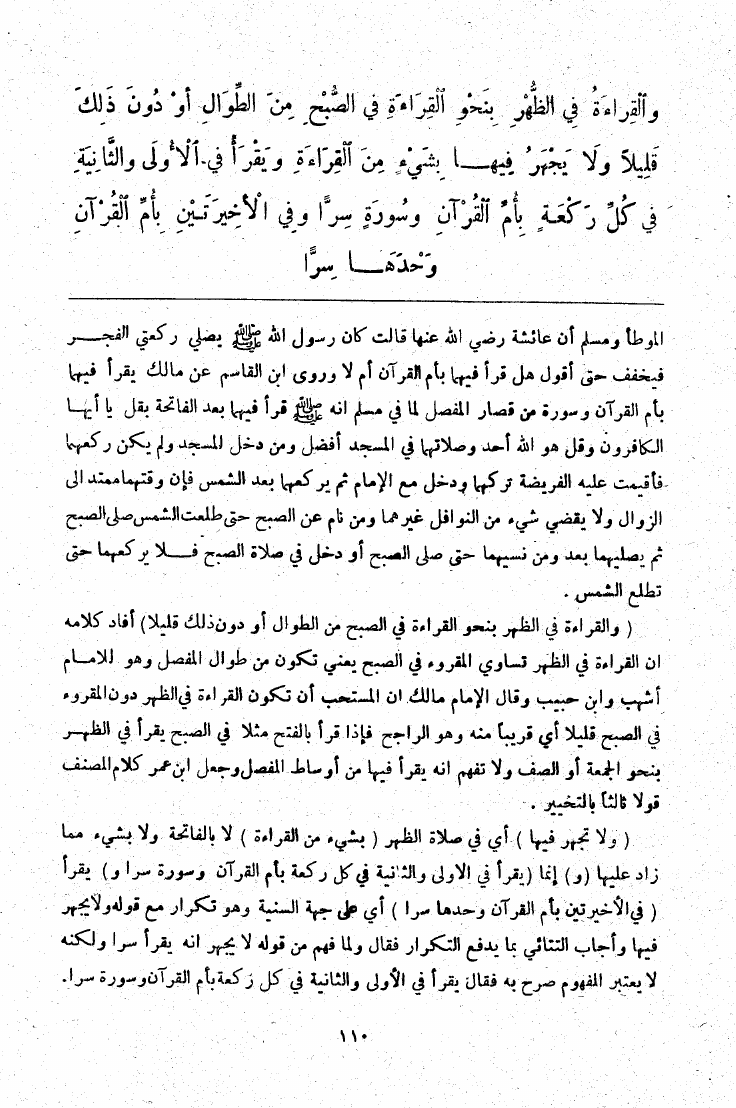 وَٱلْقِرَاءَةُ فِي الظُّهْرِ بِنَحْوِ ٱلْقِرَاءَةِ فِي الصُّبْحِ مِنَ الطِّوَالِ أَوْ دُونَ ذَلِكَ
قَلِيلاً وَلَا يَجْهَرُ فِيهَـــا بِشَيْءٍ مِنَ ٱلْقِرَاءَةِ وَيَقْرَأُ فِي ٱلْأُولَى والثَّانِيَةِ
فِي كُلِّ رَكْعَةٍ بِأُمِّ ٱلْقُرْآنِ وسُورَةٍ سِرًّا وفِي الْأَخِيرَتَيْنِ بِأُمِّ ٱلْقُرْآنِ
وَحْدَهَـــا سِرًّا
الموطأ ومسلم أن عائشة رضي الله عنها قالت كان رسول الله ﷺ يصلي ركعتي الفجـــر
فيخفف حتى أقول هل قرأ فيهما بأم القرآن أم لا وروى ابن القاسم عن مالك يقرأ فيهما
بأم القرآن وسورة من قصار المفصل لما في مسلم انه ﷺ قرأ فيهما بعد الفاتحة بقل يا أيهـا
الكافرون وقل هو الله أحد وصلاتهما في المسجد أفضل ومن دخل المسجد ولم يكن ركعهما
فأقيمت عليه الفريضة تركهما ودخل مع الإمام ثم يركعهما بعد الشمس فإن وقتهما ممتد الى
الزوال ولا يقضي شيء من النوافل غيرهما ومن نام عن الصبح حتى طلعت الشمس صلى الصبح
ثم يصليهما بعد ومن نسيهما حتى صلى الصبح أو دخل في صلاة الصبح فـــلا يركعهما حتى
تطلع الشمس .
( والقراءة في الظهر بنحو القراءة في الصبح من الطوال أو دون ذلك قليلا) أفاد كلامه
ان القراءة في الظهر تساوي المقروء في الصبح يعني تكون من طوال المفصل وهو للامـام
أشهب وابن حبيب وقال الإمام مالك ان المستحب أن تكون القراءة في الظهر دون المقروء
في الصبح قليلا أي قريباً منه وهو الراجح فإذا قرأ بالفتح مثلا في الصبح يقرأ في الظهـر
بنحو الجمعة أو الصف ولا تفهم انه يقرأ فيها من أوساط المفصل وجعل ابن عمر كلام المصنف
قولا ثالثاً بالتخيير .
( ولا تجهر فيها ) أي في صلاة الظهر ( بشيء من القراءة ) لا بالفاتحة ولا بشيء مما
زاد عليها (و) إنما (يقرأ في الاولى والثانية في كل ركعة بأم القرآن وسورة سرا و) يقرأ
( في الأخيرتين بأم القرآن وحدها سرا ) أي على جهة السنية وهو تكرار مع قوله ولا يجهر
فيها وأجاب التتائي بما يدفع التكرار فقال ولما فهم من قوله لا يجهر انه يقرأ سرا ولكنه
لا يعتبر المفهوم صرح به فقال يقرأ في الأولى والثانية في كل ركعة بأم القرآن وسورة سرا .
١١٠